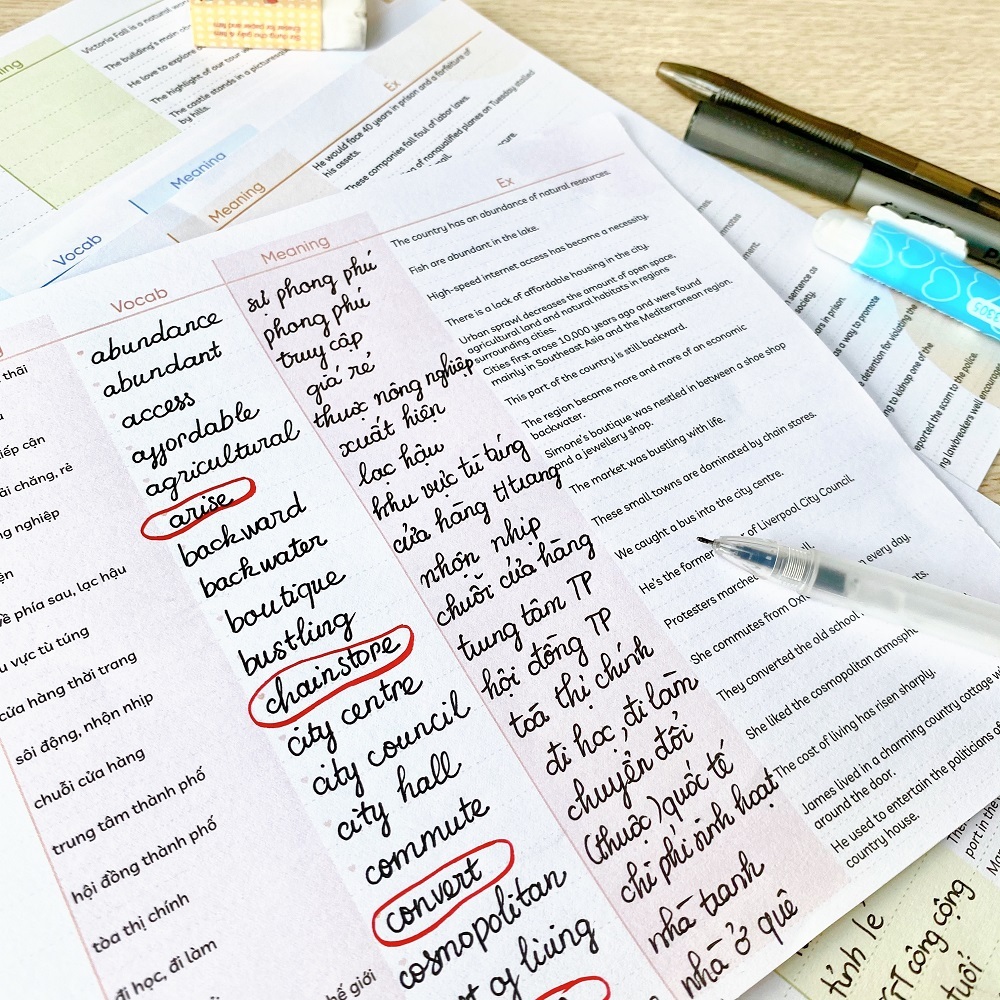 Victoria Fall is a natural
The building's main
He love to explore
The highlight of our tour
The castle stands in a picturesque
by hills.
Ex
He would face 40 years in prison and a forfeiture of
his assets.
These companies fall foul of labor laws.
of nonqualified planes on Tuesday
Meaning
Vocab
Meaning
Vocab
Meaning
Ex
abundance
abundant
access
affordable
agricultural
arise
backward
backwater
boutique
bustling
chainstore
city centre
city council
city hall
commute
convert
cosmopolitan
of living
sự phong phú
phong phú
truy cập
giá rẻ
thuộc nông nghiệp
xuất hiện
lạc hậu
khu vực tù túng
cửa hàng t/trang
nhộn nhịp
chuỗi cửa hàng
trung tâm TP
hội đồng TP
toà thị chính
đi học, đi làm
chuyển đổi
(thuộc) quốc tế
chi phí sinh hoạt
nhà tranh
nhà ở quê
The country has an abundance of natural resources.
Fish are abundant in the lake.
High-speed internet access has become a necessity.
There is a lack of affordable housing in the city.
Urban sprawl decreases the amount of open space,
agricultural land and natural habitats in regions
surrounding cities.
Cities first arose 10,000 years ago and were found
mainly in Southeast Asia and the Mediterranean region.
This part of the country is still backward.
The region became more and more of an economic
backwater.
Simone's boutique was nestled in between a shoe shop
and a jewellery shop.
The market was bustling with life.
These small towns are dominated by chain stores.
We caught a bus into the city centre.
He's the former of Liverpool City Council.
Protesters marched
She commutes from every day.
They converted the old school
She liked the cosmopolitan
The cost of living has risen sharply.
James lived in a charming country cottage
around the door.
He used to entertain the politicians
country house.
thái
tiếp cận
phải chăng, rẻ
nghiệp
về phía sau, lạc hậu
vực tù túng
cửa hàng thời trang
sôi động, nhộn nhịp
chuỗi cửa hàng
trung tâm thành phố
hội đồng thành phố
tòa thị chính
đi học, đi làm
thế giới
sentence as
society.
as a way to promote
detention for violating the
to kidnap one of the
reported the scam to the police.
lawbreakers well
port in the
tỉnh lẻ
GT công cộng
tuổi